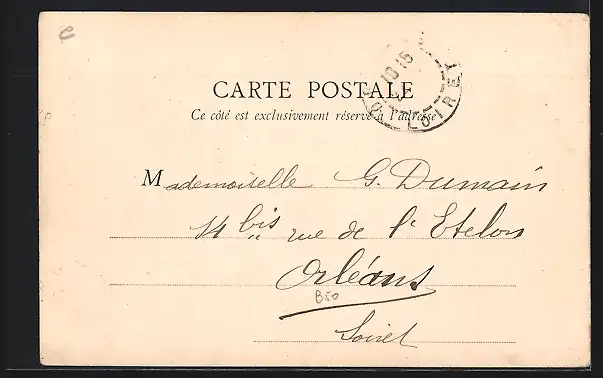 e
10 15
LOIRET
CARTE POSTALE
Ce côté est exclusivement réservé à l'adresse
Mademoiselle G. Dumain
14 bis rue de l'Etelon
Orléans
B50
Loiret